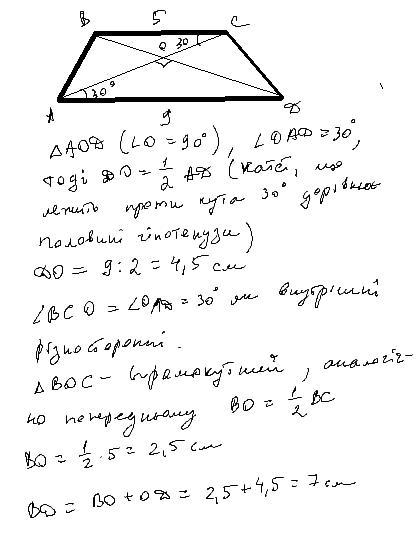 B 5 C
O 30
30°
A 9 D
△AOD (∠O = 90°), ∠OAD = 30°,
тоді DO = 1/2 AD (катет, що
лежить проти кута 30° дорівнює
половині гіпотенузи)
DO = 9 : 2 = 4,5 см
∠BCO = ∠OAD = 30° як внутрішні
різносторонні.
△BOC – прямокутний, аналогіч-
но попередньому BO = 1/2 BC
BO = 1/2 · 5 = 2,5 см
BD = BO + OD = 2,5 + 4,5 = 7 см